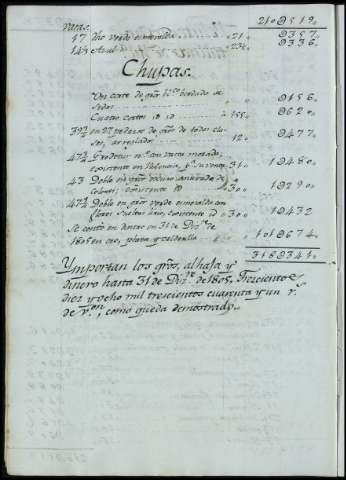 Varas. 210 8519„
17 Dho verde esmeralda „ 21 „ 0357„
14½ Azul „ 23½ „ 0336„
Chupas.
Un corte de gro bordado de
Sedas „ „ 0156„
Cuatro cortes id id „ 155„ 0620„
39¾ en pedazos de gro de todas cla-
ses, arreglados 12„ 0477„
47¾
existente en Valencia, 31„ 10480„
43 Doble en gro
Colones; existente id „ 30„ 10290„
47¾ Doble en gro verde esmeralda con
flores sueltas existente id „ 30„ 10432
Se contó en dinero en 31 de Dizre de
1805 en oro, plata y calderilla „ 1010674„
3180341„
Ymportan los gros, alhaja y
dinero hasta 31 de Dizre de 1805, Trecientos
diez y ocho mil trescientos cuarenta y un rs
de von, como queda demostrado.